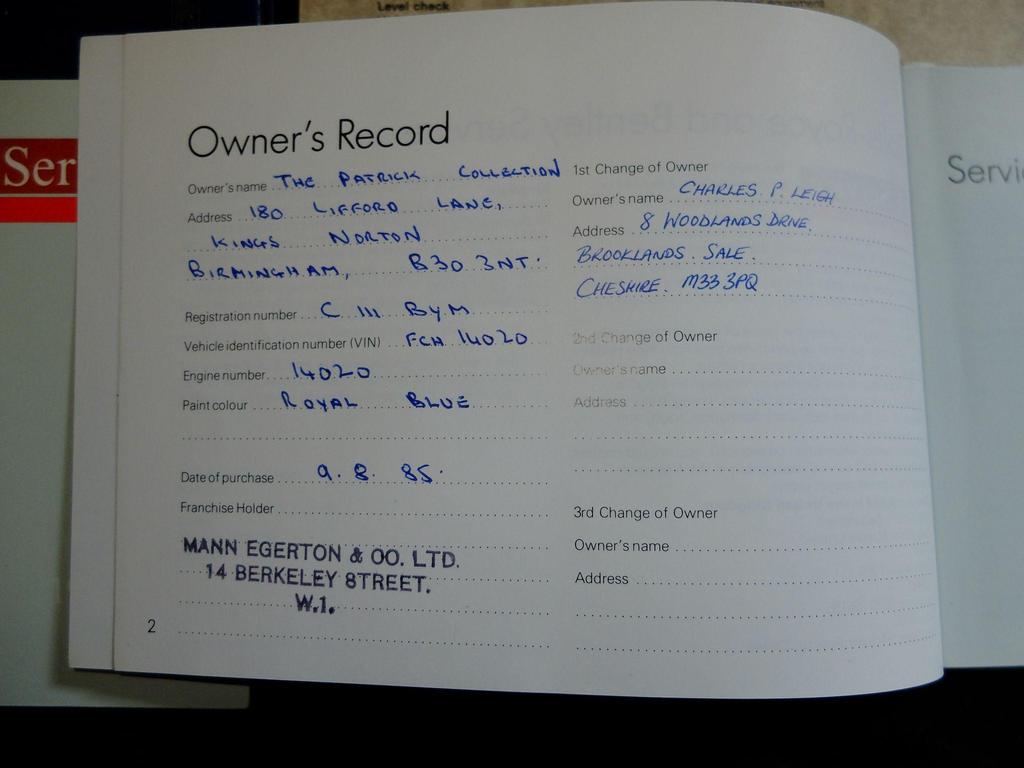 Level check
Ser
Owner's Record
Owner's name THE PATRICK COLLECTION
Address 180 LIFFORD LANE,
KINGS NORTON
BIRMINGHAM, B30 3NT.
Registration number C 111 BYM
Vehicle identification number (VIN) FCH 14020
Engine number 14020
Paint colour ROYAL BLUE
Date of purchase 9. 8. 85.
Franchise Holder
MANN EGERTON & OO. LTD.
14 BERKELEY STREET.
W.1.
2
1st Change of Owner
Owner's name CHARLES P. LEIGH
Address 8 WOODLANDS DRIVE.
BROOKLANDS. SALE.
CHESHIRE. M33 3PQ
2nd Change of Owner
Owner's name
Address
3rd Change of Owner
Owner's name
Address
Servi